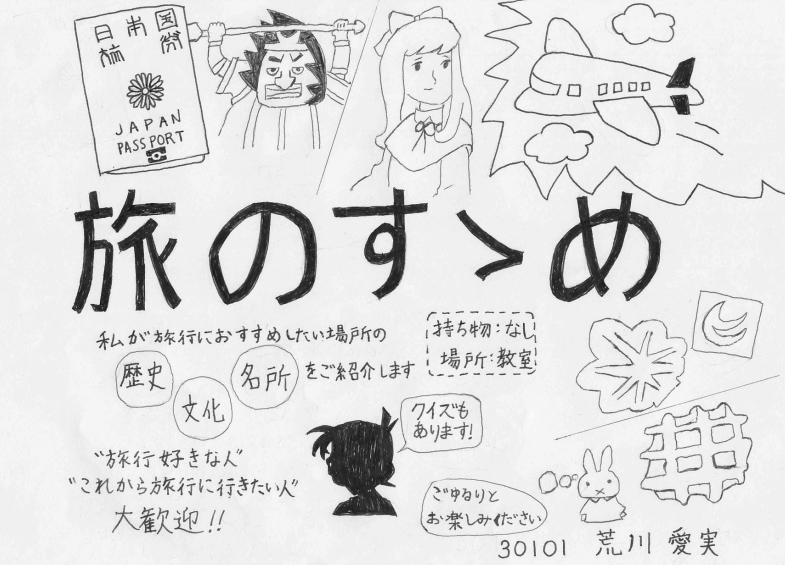 日本国
旅券
JAPAN
PASSPORT
旅のすゝめ
私が旅行におすすめしたい場所の
歴史 文化 名所 をご紹介します
持ち物:なし
場所:教室
クイズも
あります!
"旅行好きな人"
"これから旅行に行きたい人"
大歓迎!!
ごゆるりと
お楽しみください
30101 荒川 愛実